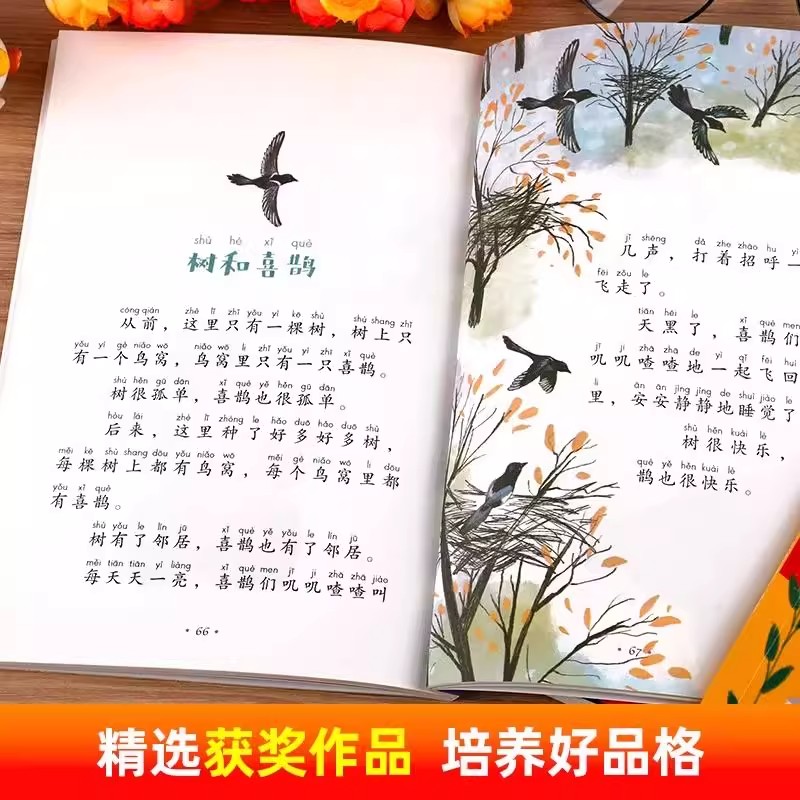 shù hé xǐ què
树和喜鹊
cóng qián zhè lǐ zhǐ yǒu yì kē shù shù shang zhǐ
从前，这里只有一棵树，树上只
yǒu yí gè niǎo wō niǎo wō li zhǐ yǒu yì zhī xǐ què
有一个鸟窝，鸟窝里只有一只喜鹊。
shù hěn gū dān xǐ què yě hěn gū dān
树很孤单，喜鹊也很孤单。
hòu lái zhè lǐ zhòng le hǎo duō hǎo duō shù
后来，这里种了好多好多树，
měi kē shù shang dōu yǒu niǎo wō měi gè niǎo wō li dōu
每棵树上都有鸟窝，每个鸟窝里都
yǒu xǐ què
有喜鹊。
shù yǒu le lín jū xǐ què yě yǒu le lín jū
树有了邻居，喜鹊也有了邻居。
měi tiān tiān yí liàng xǐ què men jī jī zhā zhā jiào
每天天一亮，喜鹊们叽叽喳喳叫
66
jǐ shēng dǎ zhe zhāo hu yì
几声，打着招呼一
fēi zǒu le
飞走了。
tiān hēi le xǐ què men
天黑了，喜鹊们
jī jī zhā zhā de yì qǐ fēi huí
叽叽喳喳地一起飞回
li ān ān jìng jìng de shuì jiào le
里，安安静静地睡觉了
shù hěn kuài lè
树很快乐，
què yě hěn kuài lè
鹊也很快乐。
67
精选获奖作品 培养好品格